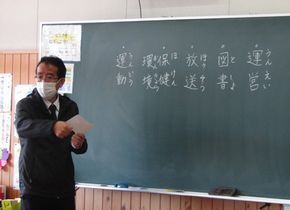 運営
図書
放送
保健
環境
運動